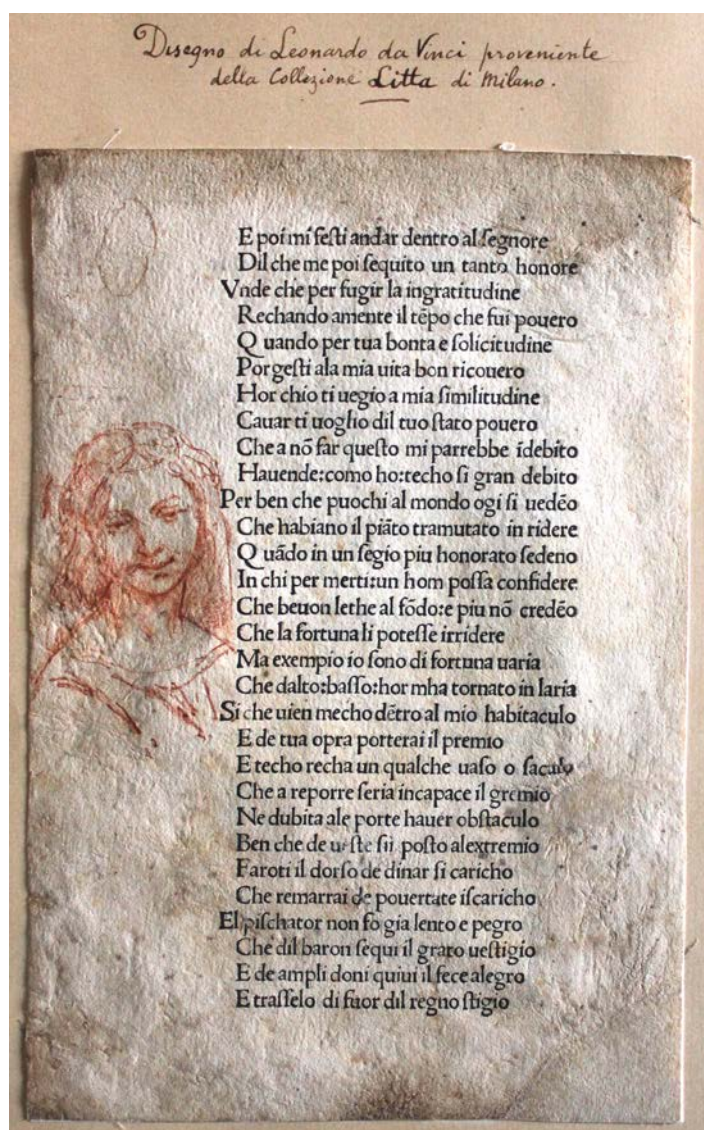 Disegno di Leonardo da Vinci proveniente
della Collezione Litta di Milano.
E poi mi feſti andar dentro al ſegnore
Dil che me poi ſequito un tanto honore
Vnde che per fugir la ingratitudine
Rechando amente il tẽpo che fui pouero
Q uando per tua bonta e ſolicitudine
Porgeſti ala mia uita bon ricouero
Hor chio ti uegio a mia ſimilitudine
Cauar ti uoglio dil tuo ſtato pouero
Che a nõ far queſto mi parrebbe ĩdebito
Hauende:como ho:techo ſi gran debito
Per ben che puochi al mondo ogi ſi uedẽo
Che habiano il piãto tramutato in ridere
Q uãdo in un ſegio piu honorato ſedeno
In chi per merti:un hom poſſa confidere
Che beuon lethe al fõdo:e piu nõ credẽo
Che la fortuna li poteſſe irridere
Ma exempio io ſono di fortuna uaria
Che dalto:baſſo:hor mha tornato in laria
Si che uien mecho dẽtro al mio habitaculo
E de tua opra porterai il premio
E techo recha un qualche uaſo o ſaculo
Che a reporre ſeria incapace il gremio
Ne dubita ale porte hauer obſtaculo
Ben che de ueſte ſii poſto alextremio
Faroti il dorſo de dinar ſi caricho
Che remarrai de pouertate iſcaricho
El piſchator non fo gia lento e pegro
Che dil baron ſequi il grato ueſtigio
E de ampli doni quiui il fece alegro
E traſſelo di fuor dil regno ſtigio